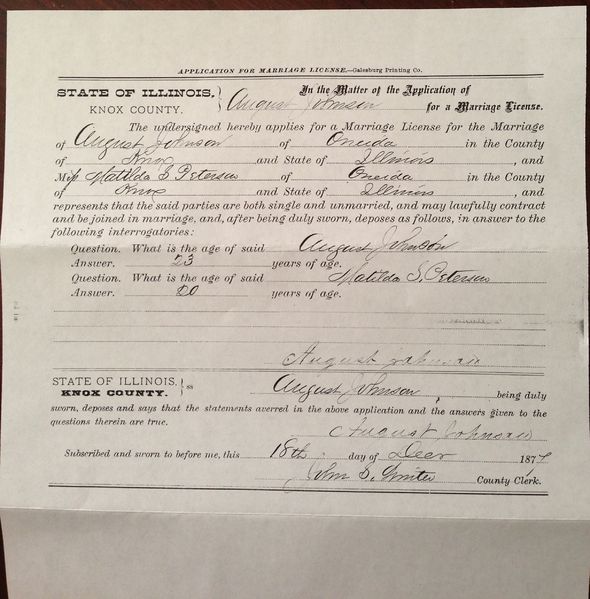 APPLICATION FOR MARRIAGE LICENSE.—Galesburg Printing Co.
STATE OF ILLINOIS, } In the Matter of the Application of
KNOX COUNTY. August Johnson for a Marriage License.
The undersigned hereby applies for a Marriage License for the Marriage
of August Johnson of Oneida in the County
of Knox and State of Illinois, and
Miss Matilda S. Peterson of Oneida in the County
of Knox and State of Illinois, and
represents that the said parties are both single and unmarried, and may lawfully contract
and be joined in marriage, and, after being duly sworn, deposes as follows, in answer to the
following interrogatories:
Question. What is the age of said August Johnson
Answer. 23 years of age.
Question. What is the age of said Matilda S. Peterson
Answer. 20 years of age.
August Johnson
STATE OF ILLINOIS, } ss August Johnson, being duly
KNOX COUNTY.
sworn, deposes and says that the statements averred in the above application and the answers given to the
questions therein are true.
August Johnson
Subscribed and sworn to before me, this 18th day of Decr 1877
John S. Winter County Clerk.